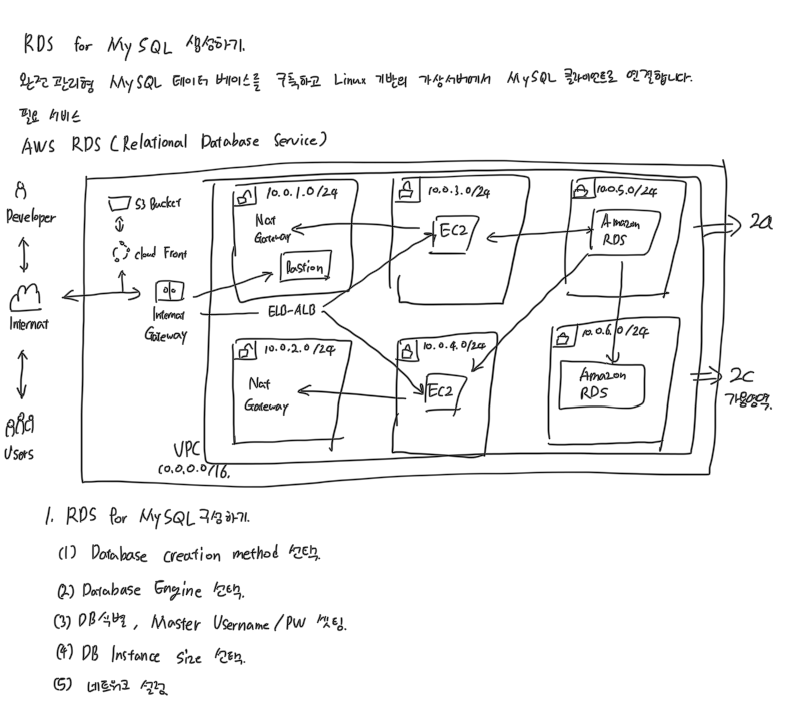 RDS for MySQL 생성하기.
완전 관리형 MySQL 데이터 베이스를 구독하고 Linux 기반의 가상서버에서 MySQL 클라이언트로 연결합니다.
필요 서비스
AWS RDS (Relational Database Service)
Developer
Internet
Users
S3 Bucket
Cloud Front
Internet
Gateway
10.0.1.0/24
Nat
Gateway
Bastion
10.0.3.0/24
EC2
10.0.5.0/24
Amazon
RDS
2a
ELB-ALB
10.0.2.0/24
Nat
Gateway
10.0.4.0/24
EC2
10.0.6.0/24
Amazon
RDS
2c
가용영역.
VPC
10.0.0.0/16.
1. RDS for MySQL 구성하기.
(1) Database creation method 선택.
(2) Database Engine 선택.
(3) DB식별, Master Username/PW 셋팅.
(4) DB Instance Size 선택.
(5) 네트워크 설정